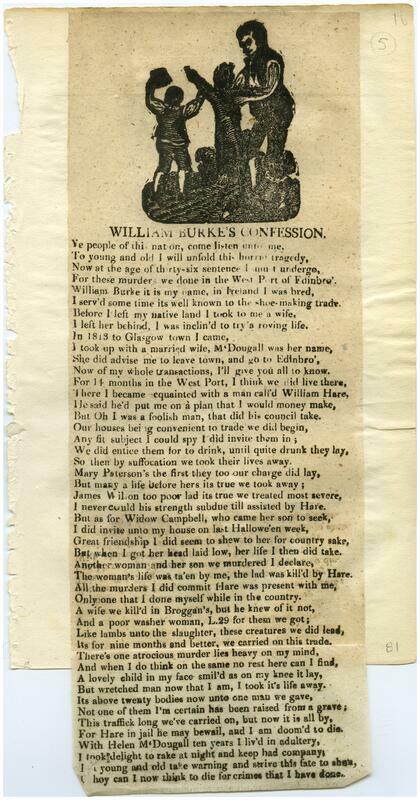 16
5
WILLIAM BURKE'S CONFESSION.
Ye people of this nation, come listen unto me,
To young and old I will unfold this horrid tragedy,
Now at the age of thirty-six sentence I must undergo,
For these murders we done in the West Port of Edinbro'.
William Burke it is my name, in Ireland I was bred,
I serv'd some time its well known to the shoe-making trade.
Before I left my native land I took to me a wife,
I left her behind, I was inclin'd to try a roving life.
In 1818 to Glasgow town I came,
I took up with a married wife, M'Dougall was her name,
She did advise me to leave town, and go to Edinbro',
Now of my whole transactions, I'll give you all to know.
For 14 months in the West Port, I think we did live there,
There I became acquainted with a man call'd William Hare,
He said he'd put me on a plan that I would money make,
But Oh I was a foolish man, that did his council take.
Our houses being convenient to trade we did begin,
Any fit subject I could spy I did invite them in;
We did entice them for to drink, until quite drunk they lay,
So then by suffocation we took their lives away.
Mary Paterson's the first they too our charge did lay,
But many a life before hers its true we took away;
James Wilson too poor lad its true we treated most severe,
I never could his strength subdue till assisted by Hare.
But as for Widow Campbell, who came her son to seek,
I did invite unto my house on last Hallowe'en week,
Great friendship I did seem to shew to her for country sake,
But when I got her head laid low, her life I then did take.
Another woman and her son we murdered I declare,
The woman's life was ta'en by me, the lad was kill'd by Hare.
All the murders I did commit Hare was present with me,
Only one that I done myself while in the country.
A wife we kill'd in Broggan's, but he knew of it not,
And a poor washer woman, L.29 for them we got;
Like lambs unto the slaughter, these creatures we did lead,
Its for nine months and better, we carried on this trade.
There's one atrocious murder lies heavy on my mind,
And when I do think on the same no rest here can I find,
A lovely child in my face smil'd as on my knee it lay,
But wretched man now that I am, I took it's life away.
Its above twenty bodies now unto one man we gave,
Not one of them I'm certain has been raised from a grave;
This traffick long we've carried on, but now it is all by,
For Hare in jail he may bewail, and I am doom'd to die.
With Helen M'Dougall ten years I liv'd in adultery,
I took delight to rake at night and keep bad company;
young and old take warning and strive this fate to shun,
hoy can I now think to die for crimes that I have done.
81